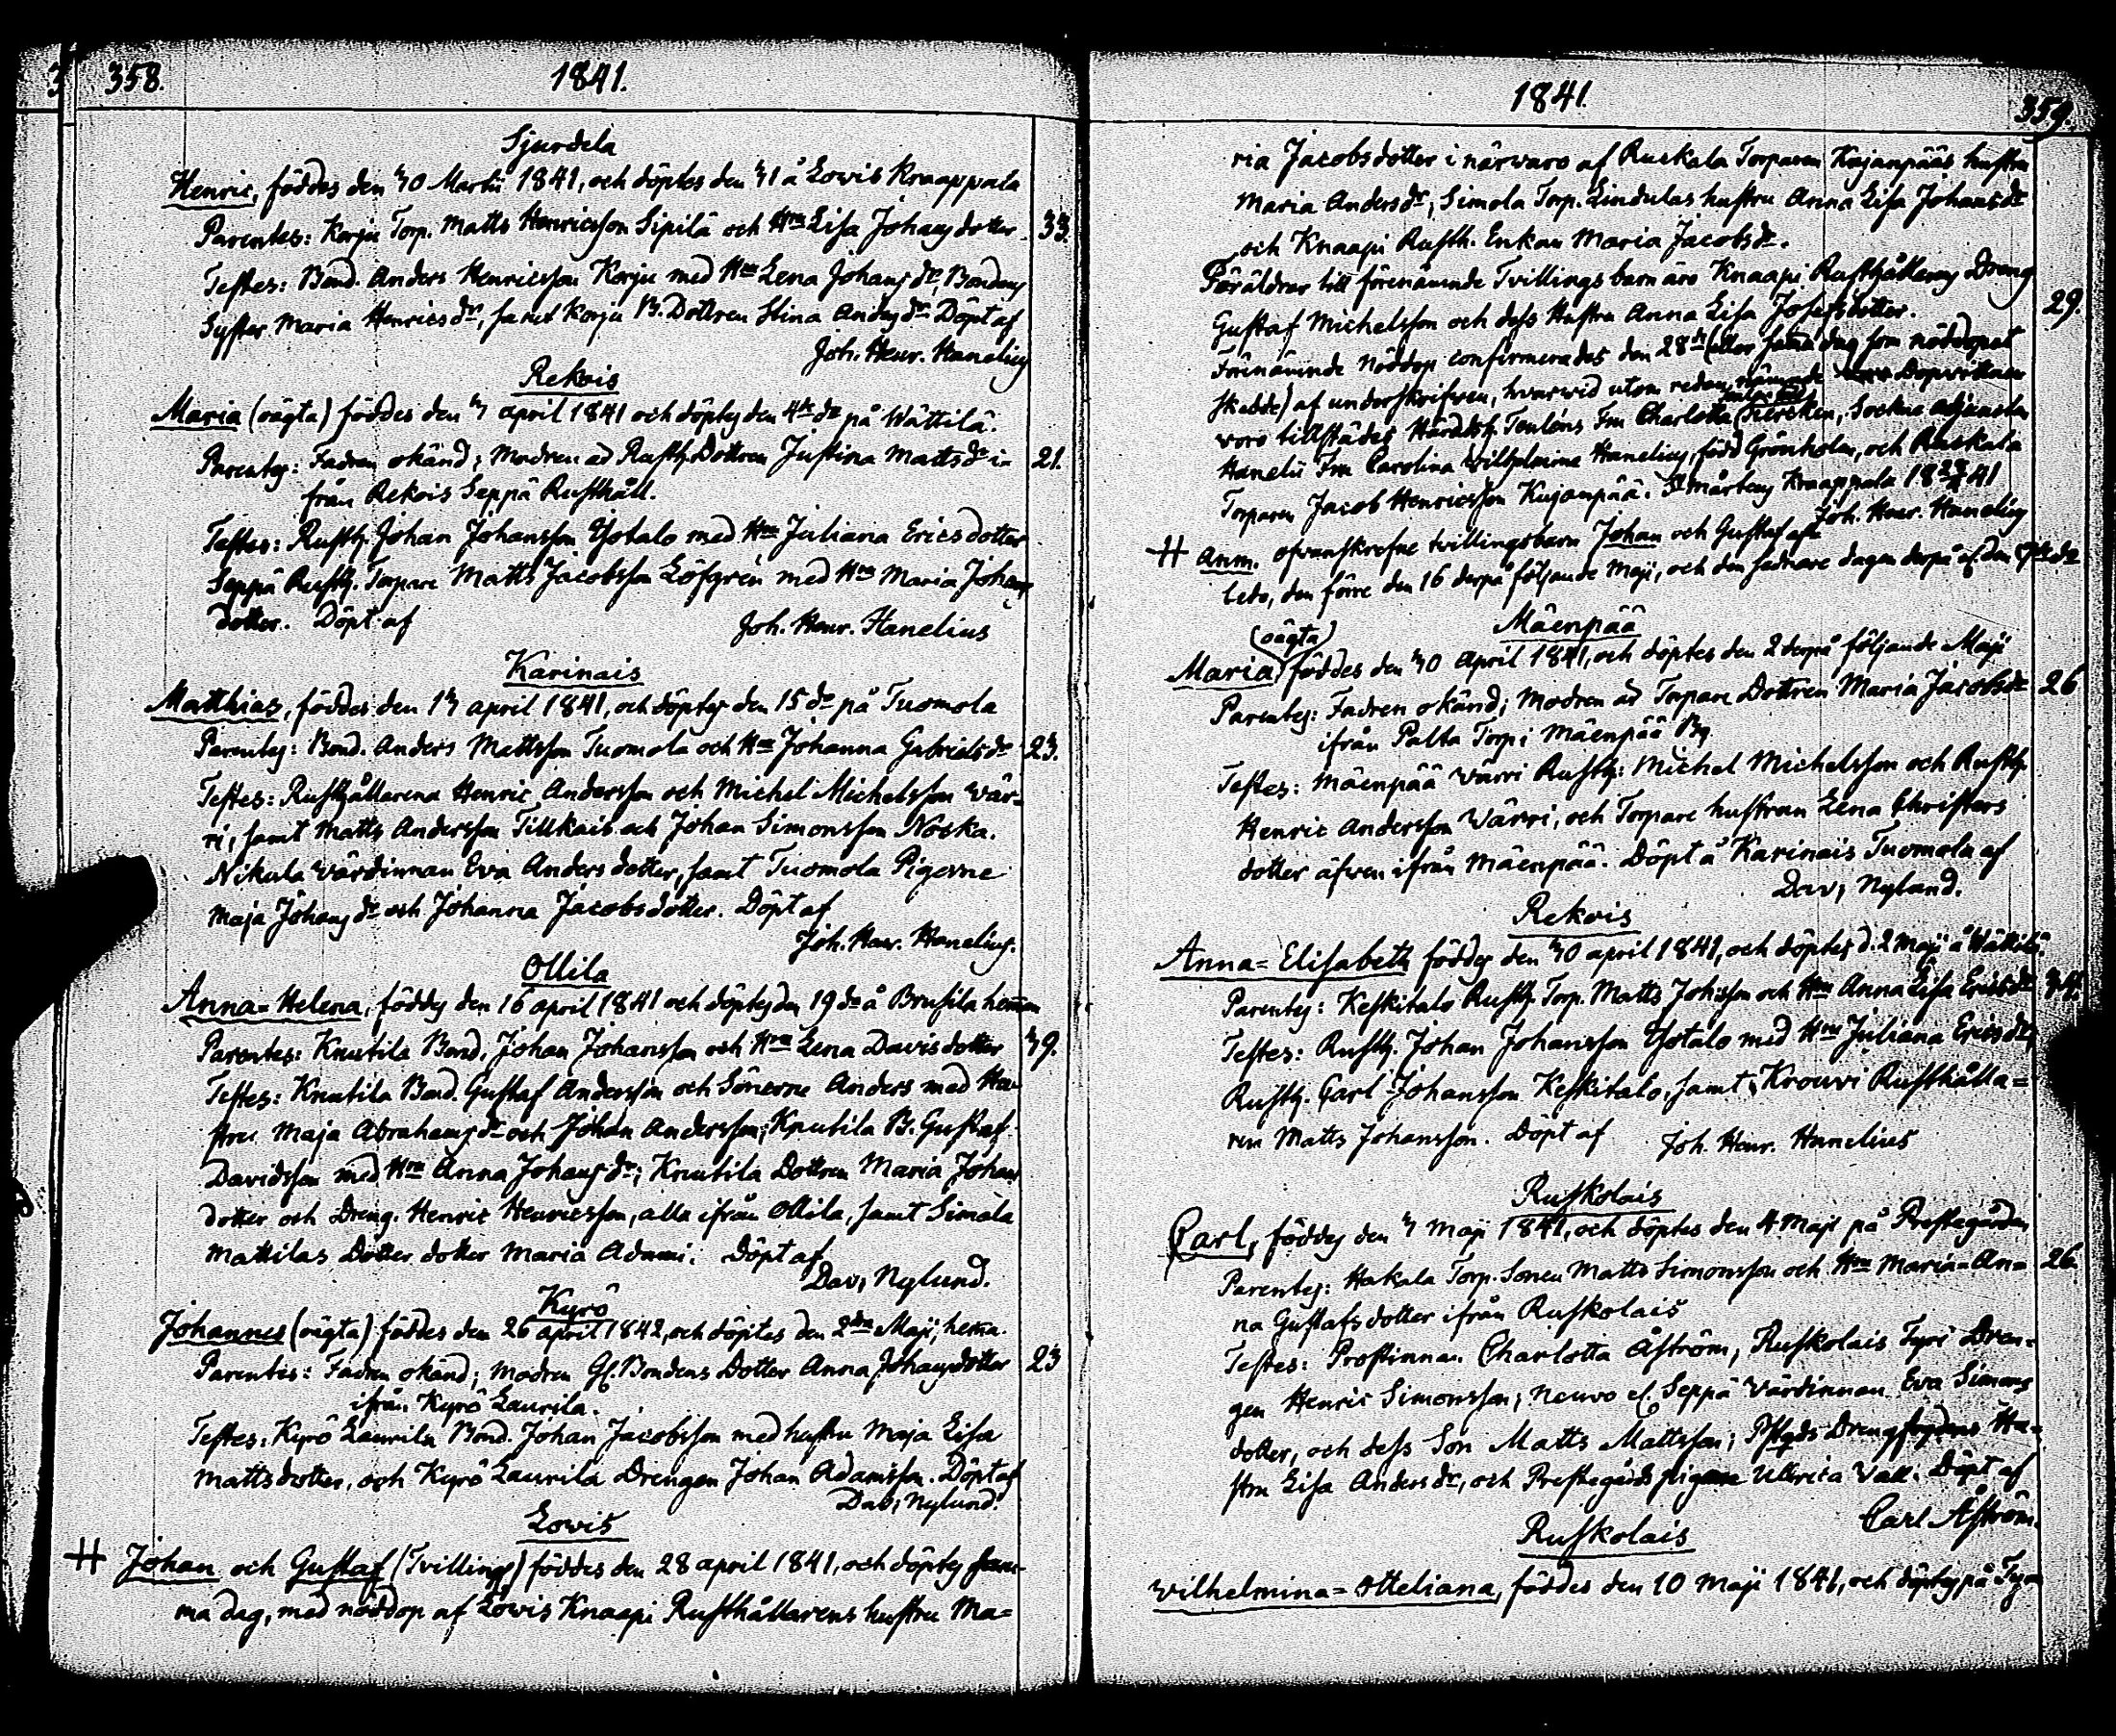 358.
1841.
Sjurdela
Henric, föddes den 30 Martii 1841, och döptes den 31 å Lowis Kraappala
Parentes: Korju Torp. Matts Henricsson Sipilä och Hru Lisa Johansdotter 33.
Testes: Bond. Anders Henricsson Korju med Hru Lena Johansdr, Bondens
Syster Maria Henricsdr, samt Korju B. Dottren Stina Andersdr. Döpt af
Joh. Henr. Hanelius
Rekois
Maria (oägta) föddes den 3 april 1841 och döptes den 4de do på Wättilä.
Parentes: Fadren okänd; Modren är Rusth. Dottren Justina Mattsdr i- 21.
från Rekois Seppä Rusthåll.
Testes: Rusth. Johan Johansson Ylotalo med Hru Juliana Ericsdotter
Seppä Rusth. Torpare Matts Jacobsson Löfgrén med Hru Maria Johans
dotter. Döpt af
Joh. Henr. Hanelius
Karinais
Matthias, föddes den 13 april 1841, och döptes den 15 do på Tuomola
Parentes: Bond. Anders Mattsson Tuomola och Hru Johanna Gabrielsdr 23.
Testes: Rusthållarena Henric Andersson och Michel Michelsson Wär-
ri, samt Matts Andersson Tillkais och Johan Simonsson Noska.
Nikula Wärdinnan Eva Andersdotter, samt Tuomola Pigorne
Maja Johansdr och Johanna Jacobsdotter. Döpt af
Joh. Henr. Hanelius.
Ollila
Anna=Helena, föddes den 16 april 1841 och döptes den 19 do å Brusila hemman
Parentes: Knutila Bond. Johan Johansson och Hru Lena Davisdotter 39.
Testes: Knutila Bond. Gustaf Andersson och Sönerne Anders med Hu-
stru Maja Abrahamsdr och Johan Andersson; Knutila B. Gustaf
Davidsson med Hru Anna Johansdr; Knutila Dottren Maria Johans
dotter och Dreng. Henric Henricsson, alla ifrån Ollila, samt Simala
Mattilas Dotter dotter Maria Adami. Döpt af
Dav; Nylund.
Kyrö
Johannes (oägta) föddes den 26 april 1842, och döptes den 2dra Maji, hema.
Parentes: Fadren okänd; modren Gl. Bondens Dotter Anna Johansdotter 23
ifrån Kyrö Laurila.
Testes: Kyrö Laurila Bond. Johan Jacobsson med hustru Maja Lisa
Mattsdotter, och Kyrö Laurila Drengen Johan Adamsson. Döpt af
Dav; Nylund.
Lowis
# Johan och Gustaf (Tvilling) föddes den 28 april 1841, och döptes sam-
ma dag, med nöddop af Lowis Knaapi Rusthållarens hustru Ma=
1841.
359.
ria Jacobsdotter i närwaro af Ruskala Torparen Kujanpääs hustru
Maria Andersdr, Simola Torp. Lindulas hustru Anna Lisa Johansdr
och Knaapi Rusth. Enkan Maria Jacobsdr.
Föräldrar till förenämnde Tvillings barn äro Knaapi Rusthållarens Dreng
Gustaf Michelsson och dess Hustru Anna Lisa Josefsdotter. 29.
Förenämnde nöddop confirmerades den 28de (eller samma dag som nöddopet
skedde) af underskrifwen, hwarwid utom redan nämnde Dopwittnen
woro tillstädes Häradsh. Tenléns Fru Charlotta, Sockne adjuncten
Hanelii Fru Carolina Wilhelmina Hanelius, född Grönholm, och Ruskala
Torparen Jacob Henricsson Kujanpää. St Mårtens Kraappala 18 28/4 41
Joh. Henr. Hanelius
# Anm. ofvanskrefne tvillingsbarn Johan och Gustaf af-
ledo, den förre den 16 derpå följande Maji, och den sednare dagen derpå el. den 17de do
Mäenpää
(oägta)
Maria föddes den 30 April 1841, och döptes den 2 derpå följande Maji
Parentes: Fadren okänd; Modren är Torpare Dottren Maria Jacobsdr 26
ifrån Palta Torp i Mäenpää By.
Testes: Mäenpää Wärri Rusth: Michel Michelsson och Rusth.
Henric Andersson Wärri, och Torpare hustrun Lena Christers
dotter äfwen ifrån Mäenpää. Döpt å Karinais Tuomola af
Dav; Nylund.
Rekois
Anna=Elisabeth föddes den 30 april 1841, och döptes d. 2 Maji å Wättilä.
Parentes: Keskitalo Rusth. Torp. Matts Johansson och Hru Anna Lisa Ericsdr 34.
Testes: Rusth. Johan Johansson Ylotalo med Hru Juliana Ericsdr,
Rusth. Carl Johansson Keskitalo, samt Krouvi Rusthålla=
ren Matts Johansson. Döpt af Joh. Henr. Hanelius
Ruskolais
Carl, föddes den 3 Maji 1841, och döptes den 4 Maji på Prestegården
Parentes: Hakala Torp. Sonen Matts Simonsson och Hru Maria=An= 26.
na Gustafsdotter ifrån Ruskolais
Testes: Prostinnan Charlotta Åström, Ruskolais Tyri Dren-
gen Henric Simonsson; Neuvo el. Seppä Wärdinnan Eva Simons
dotter, och dess Son Matts Mattsson; Pstgds Drengfogdens Hu=
stru Lisa Andersdr, och Prestegårds pigan Ulrica Wall. Döpt af
Carl Åström.
Ruskolais
Wilhelmina=Otteliana, föddes den 10 Maji 1841, och döptes på